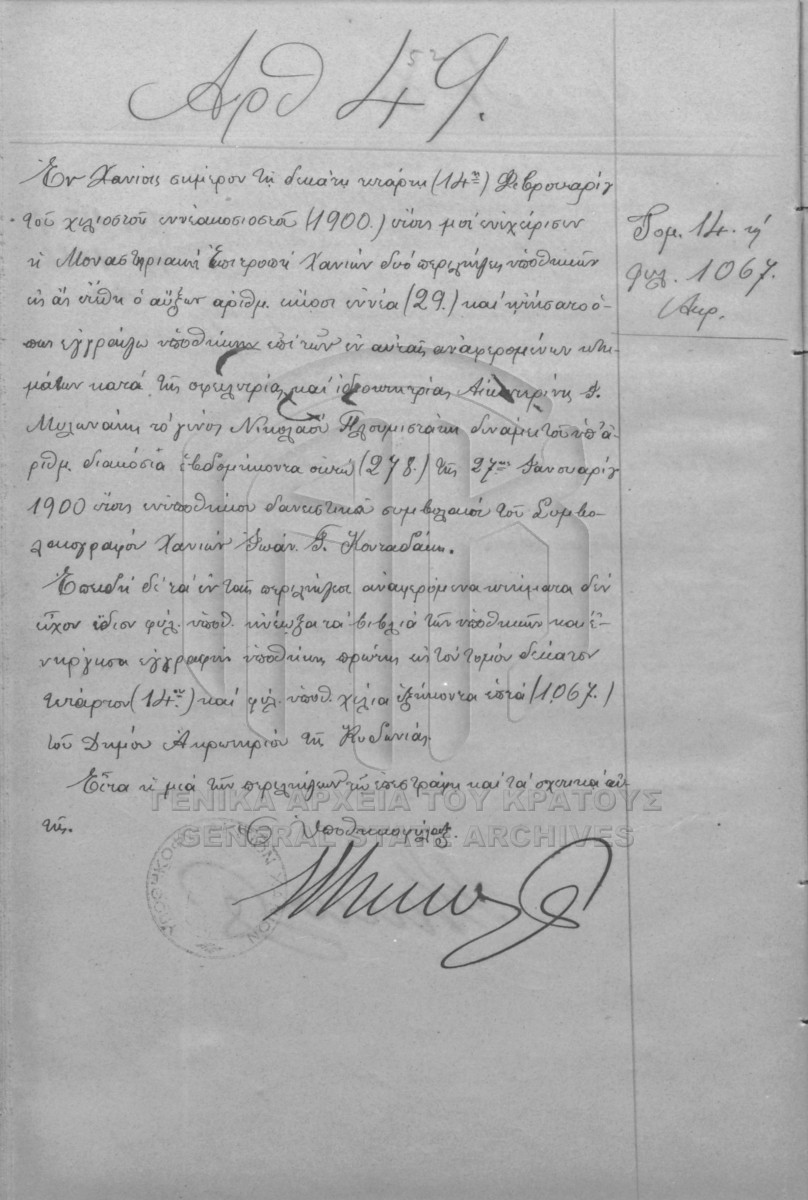 Αρθ 49.
52
Ἐν Χανίοις σήμερον τῇ δεκάτῃ τετάρτῃ (14ῃ) Φεβρουαρίου
τοῦ χιλιοστοῦ ἐννεακοσιοστοῦ (1900.) ἔτους μοί ἐνεχείρισεν
ἡ Μοναστηριακή Ἐπιτροπή Χανίων δυό περιλήψεις ὑποθηκῶν
εἰς ἅς ἐτέθη ὁ αὔξων ἀριθμ. εἴκοσι ἐννέα (29.) καί ᾐτήσατο ὅ-
πως ἐγγράψω ὑποθήκην ἐπί τῶν ἐν αὐταῖς ἀναφερομένων κτη-
μάτων κατά τῆς ὀφειλετρίας καί ἰδιοκτητρίας Αἰκατερίνης Γ.
Μυλωνάκη τό γένος Νικολάου Πλουμιστάκη δυνάμει τοῦ ὑπ' ἀ-
ριθμ. διακόσια ἑβδομήκοντα ὀκτώ (278.) τῆς 27ης Ἰανουαρίου
1900 ἔτους ἐνυποθήκου δανειστικοῦ συμβολαίου τοῦ Συμβο-
λαιογράφου Χανίων Ἰωάν. Γ. Κουταδάκη.
Ἐπειδή δέ τά ἐν ταῖς περιλήψεσι ἀναφερόμενα κτήματα δέν
εἶχον ἴδιον φύλ. ὑποθ. ἠνέῳξα τά βιβλία τῶν ὑποθηκῶν καί ἐ-
νήργησα ἐγγραφήν ὑποθήκης πρώτης εἰς τόν τόμον δέκατον
τέταρτον (14ον) καί φύλ. ὑποθ. χίλια ἑξήκοντα ἑπτά (1067.)
τοῦ Δήμου Ἀκρωτηρίου τῆς Κυδωνίας.
Εἶτα ἡ μία τῶν περιλήψεων τῇ ἐπεστράφη καί τά σχετικά αὐ-
τῆς.
Ὁ Ὑποθηκοφύλαξ.
Τομ. 14. καί
φυλ. 1067.
Ακρ.
ΓΕΝΙΚΑ ΑΡΧΕΙΑ ΤΟΥ ΚΡΑΤΟΥΣ
GENERAL STATE ARCHIVES